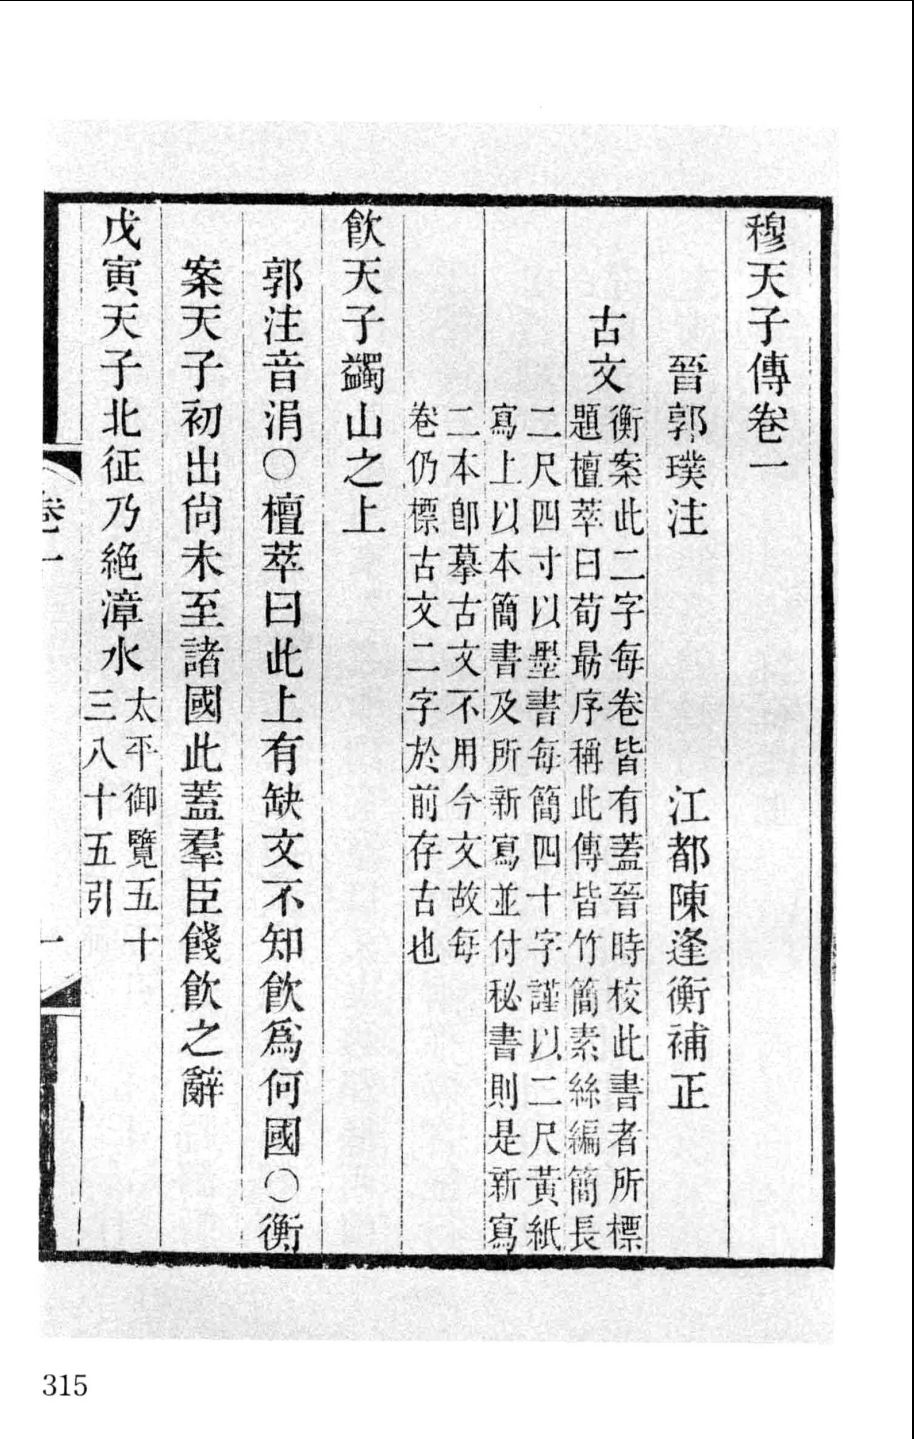 穆天子傳卷一
晉郭璞注 江都陳逢衡補正
古文
衡案此二字每卷皆有蓋晉時校此書者所標
題檀萃曰荀勗序稱此傳皆竹簡素絲編簡長
二尺四寸以墨書每簡四十字謹以二尺黃紙
寫上以本簡書及所新寫並付秘書則是新寫
二本卽摹古文不用今文故每
卷仍標古文二字於前存古也
飮天子蠲山之上
郭注音涓○檀萃曰此上有缺文不知飮爲何國○衡
案天子初出尙未至諸國此蓋羣臣餞飮之辭
戊寅天子北征乃絶漳水
太平御覽五十
三八十五引
卷一
一
315